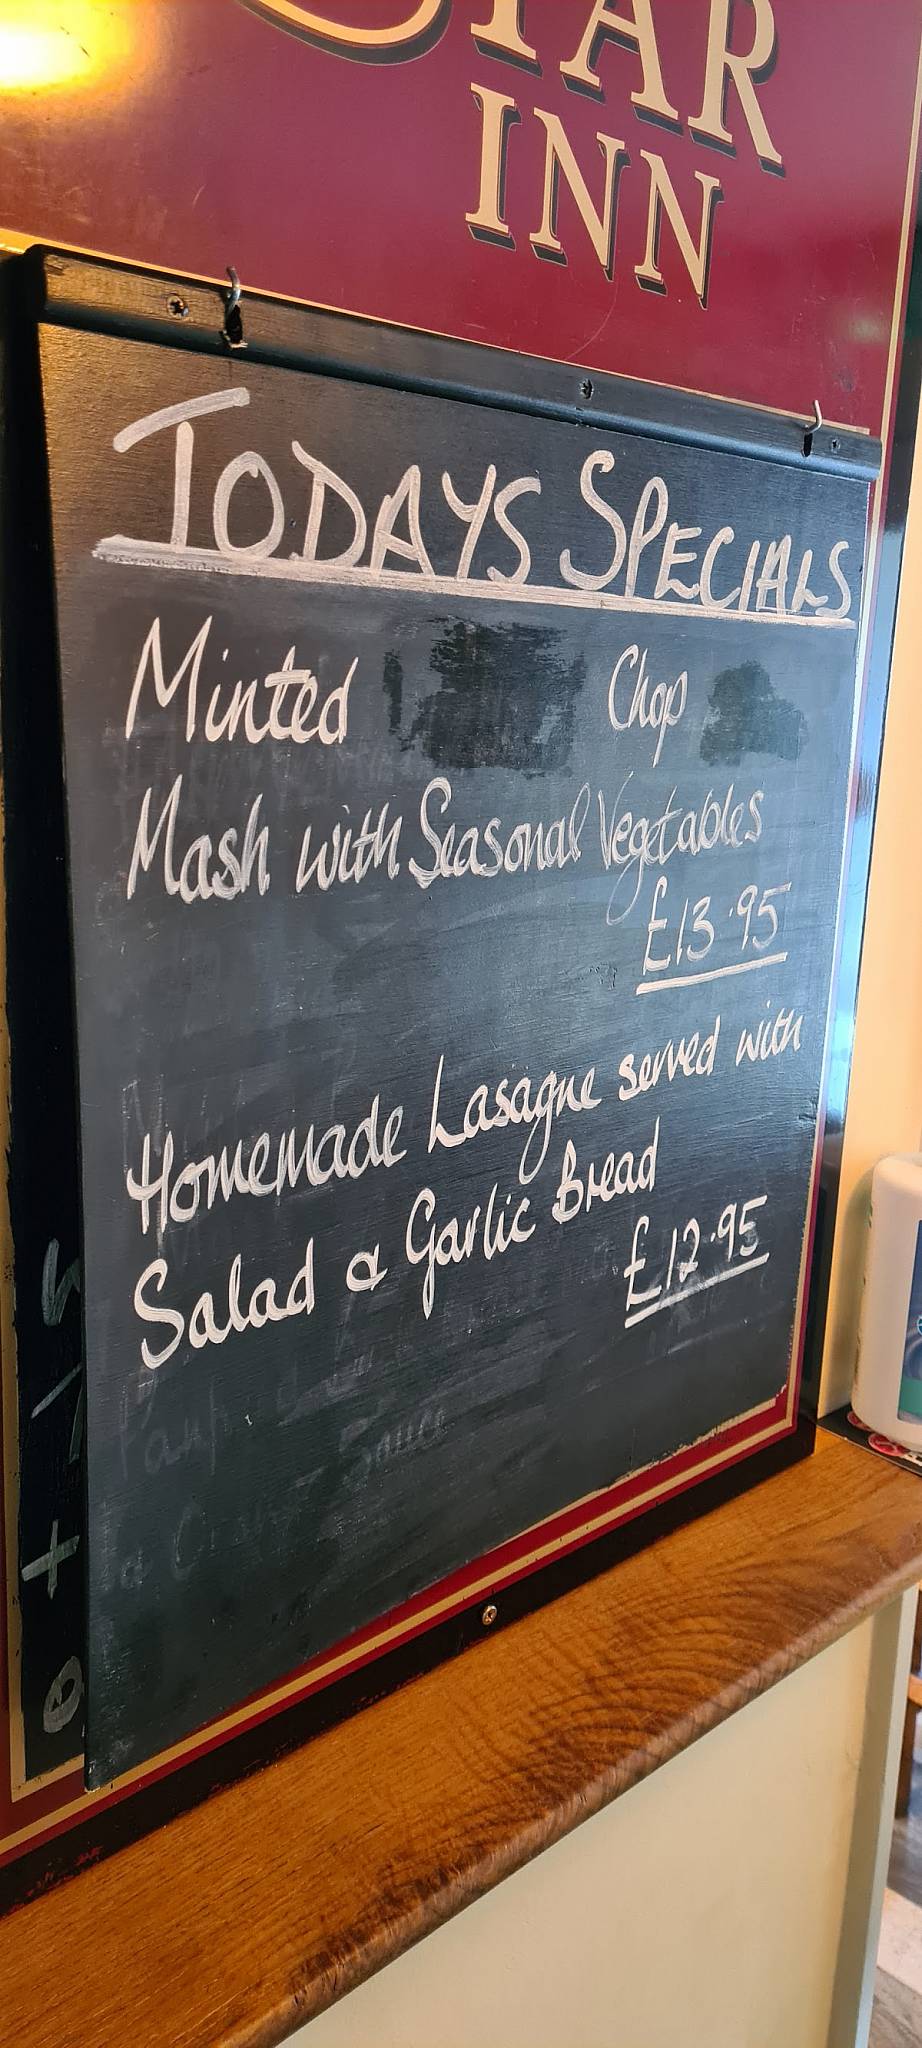 INN
TODAYS SPECIALS
Minted Chop
Mash with Seasonal Vegetables
£13.95
Homemade Lasagne served with
Salad & Garlic Bread
£12.95
Sauce